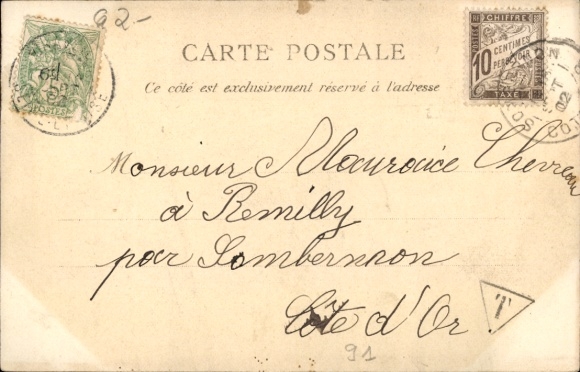 92-
CARTE POSTALE
Ce côté est exclusivement réservé à l'adresse
POSTES
CHIFFRE
10 CENTIMES
PERCEVOIR
TAXE
02
Monsieur Maurice Chevreau
à Remilly
par Sombernon
Côte d'Or
T
91